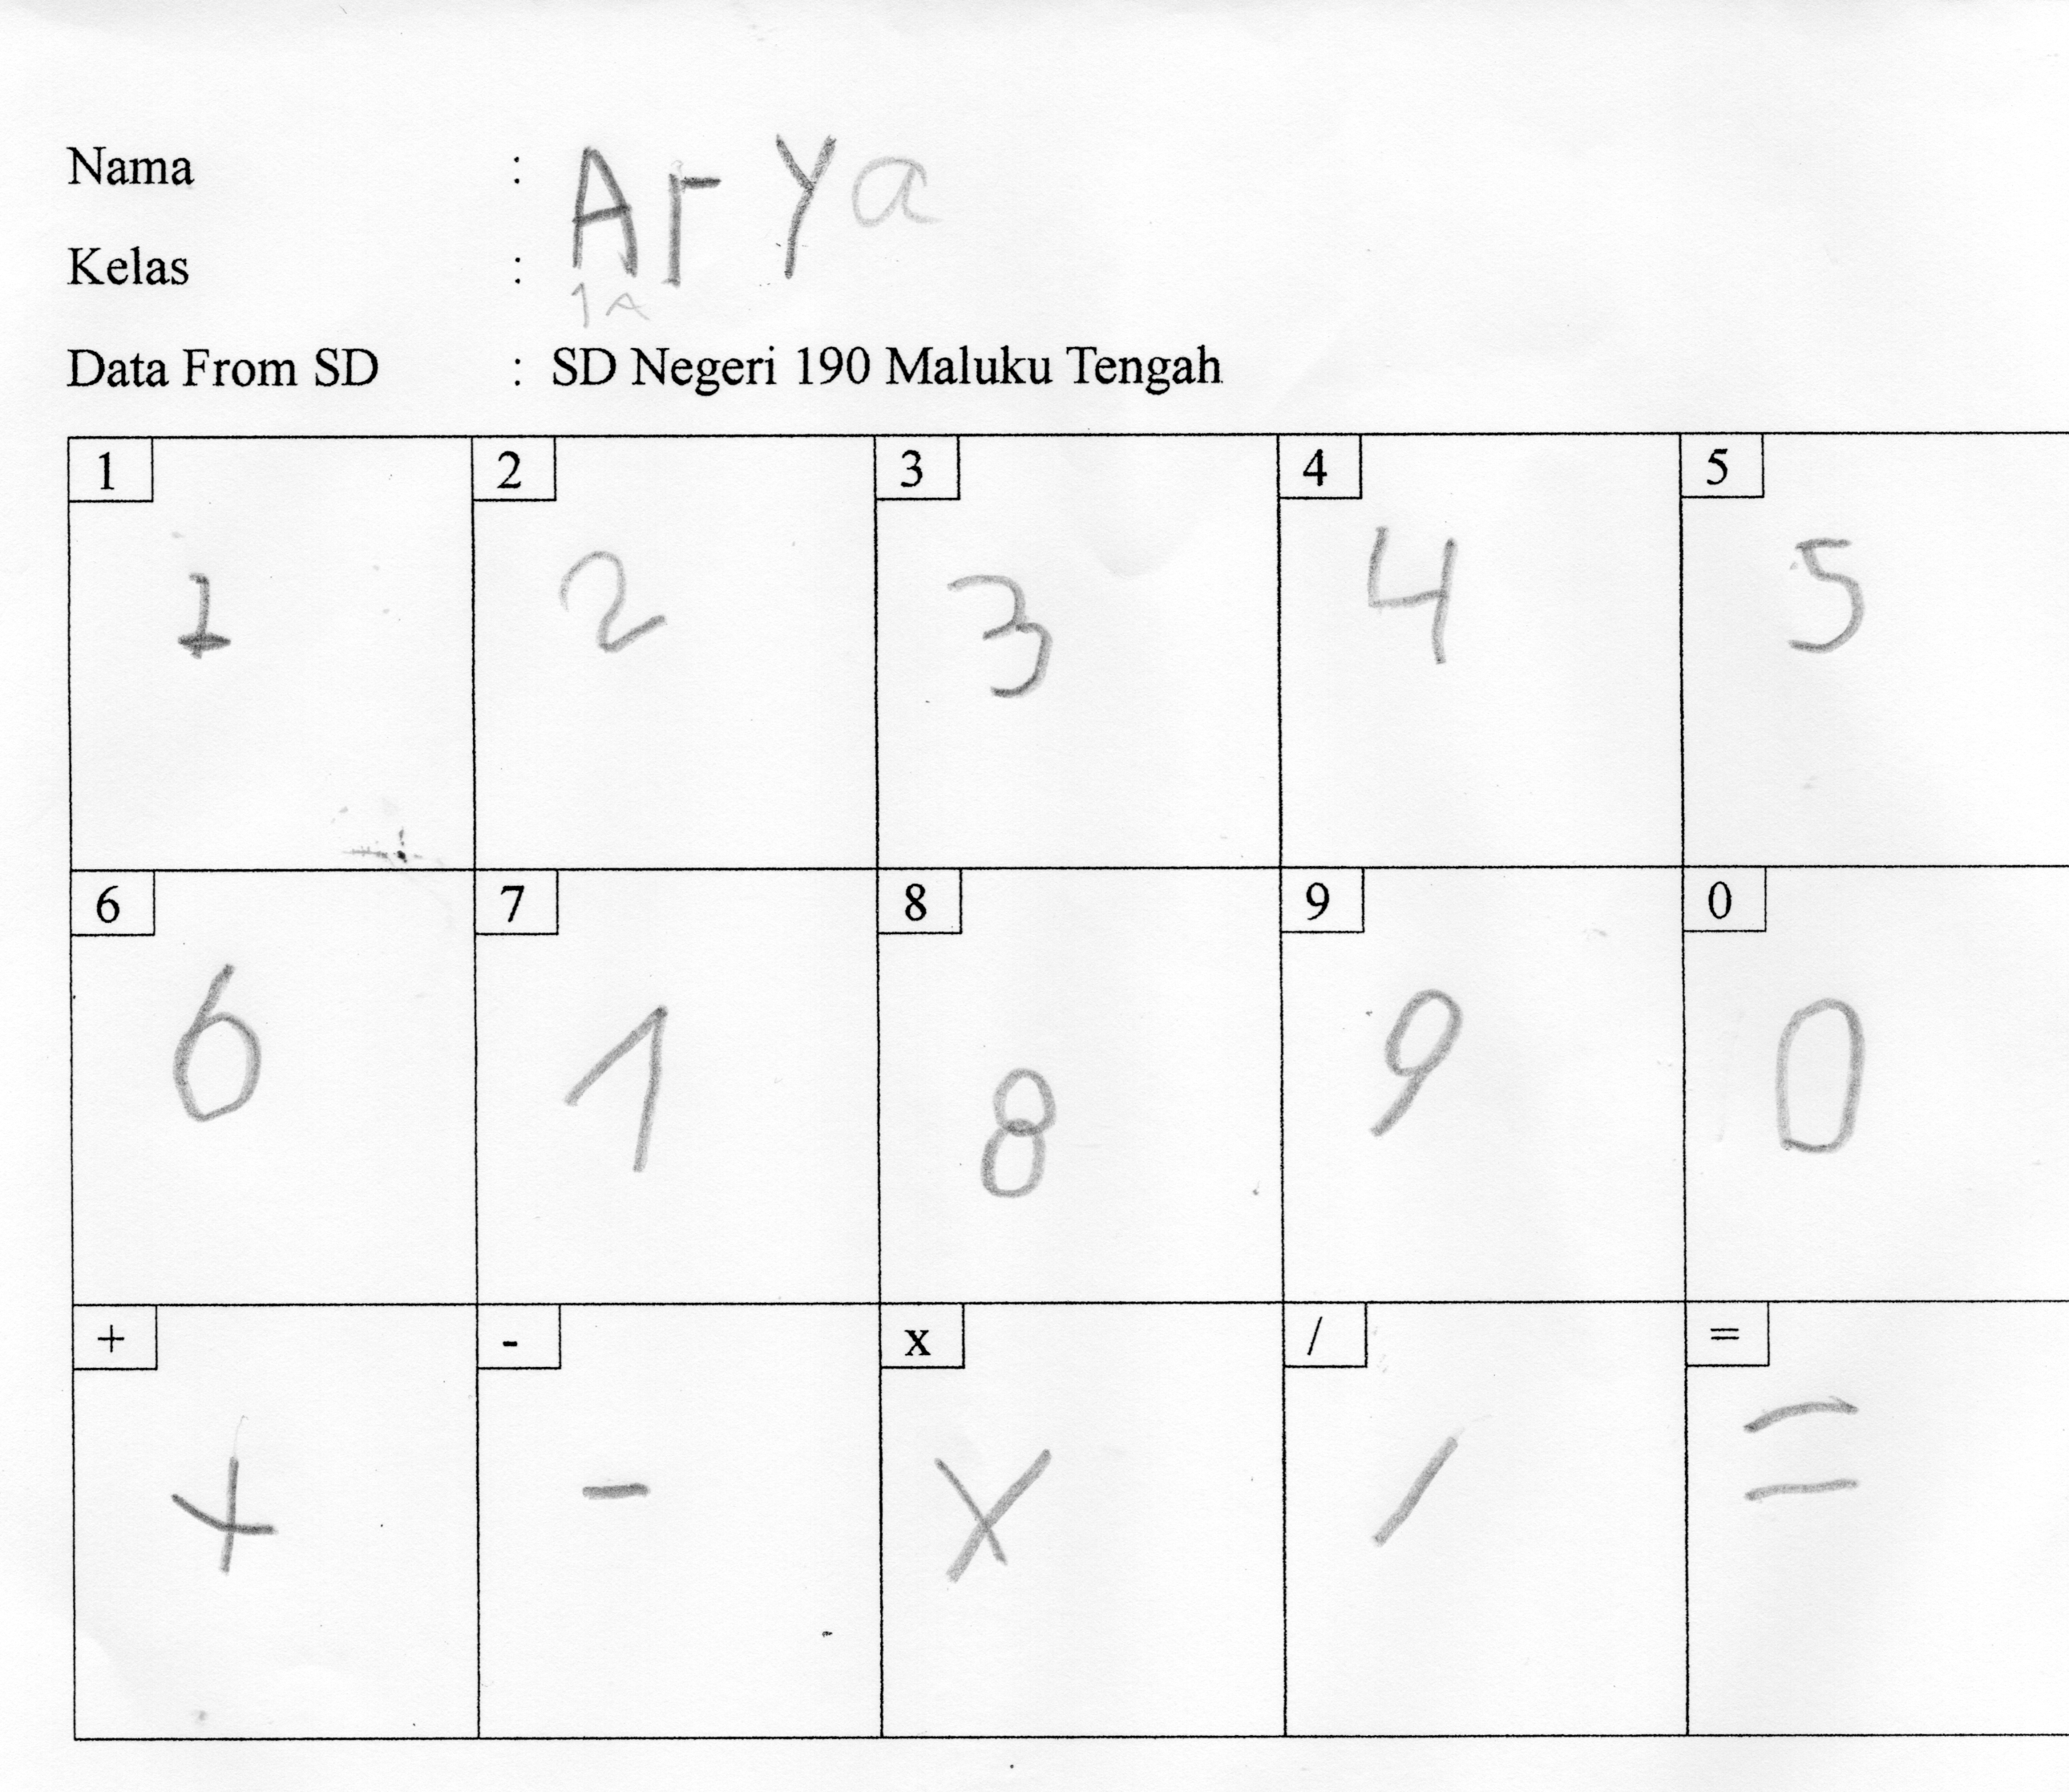 Nama : Arya
Kelas : 1A
Data From SD : SD Negeri 190 Maluku Tengah
1 2 3 4 5
1 2 3 4 5
6 7 8 9 0
6 7 8 9 0
+ - x / =
+ - x / =